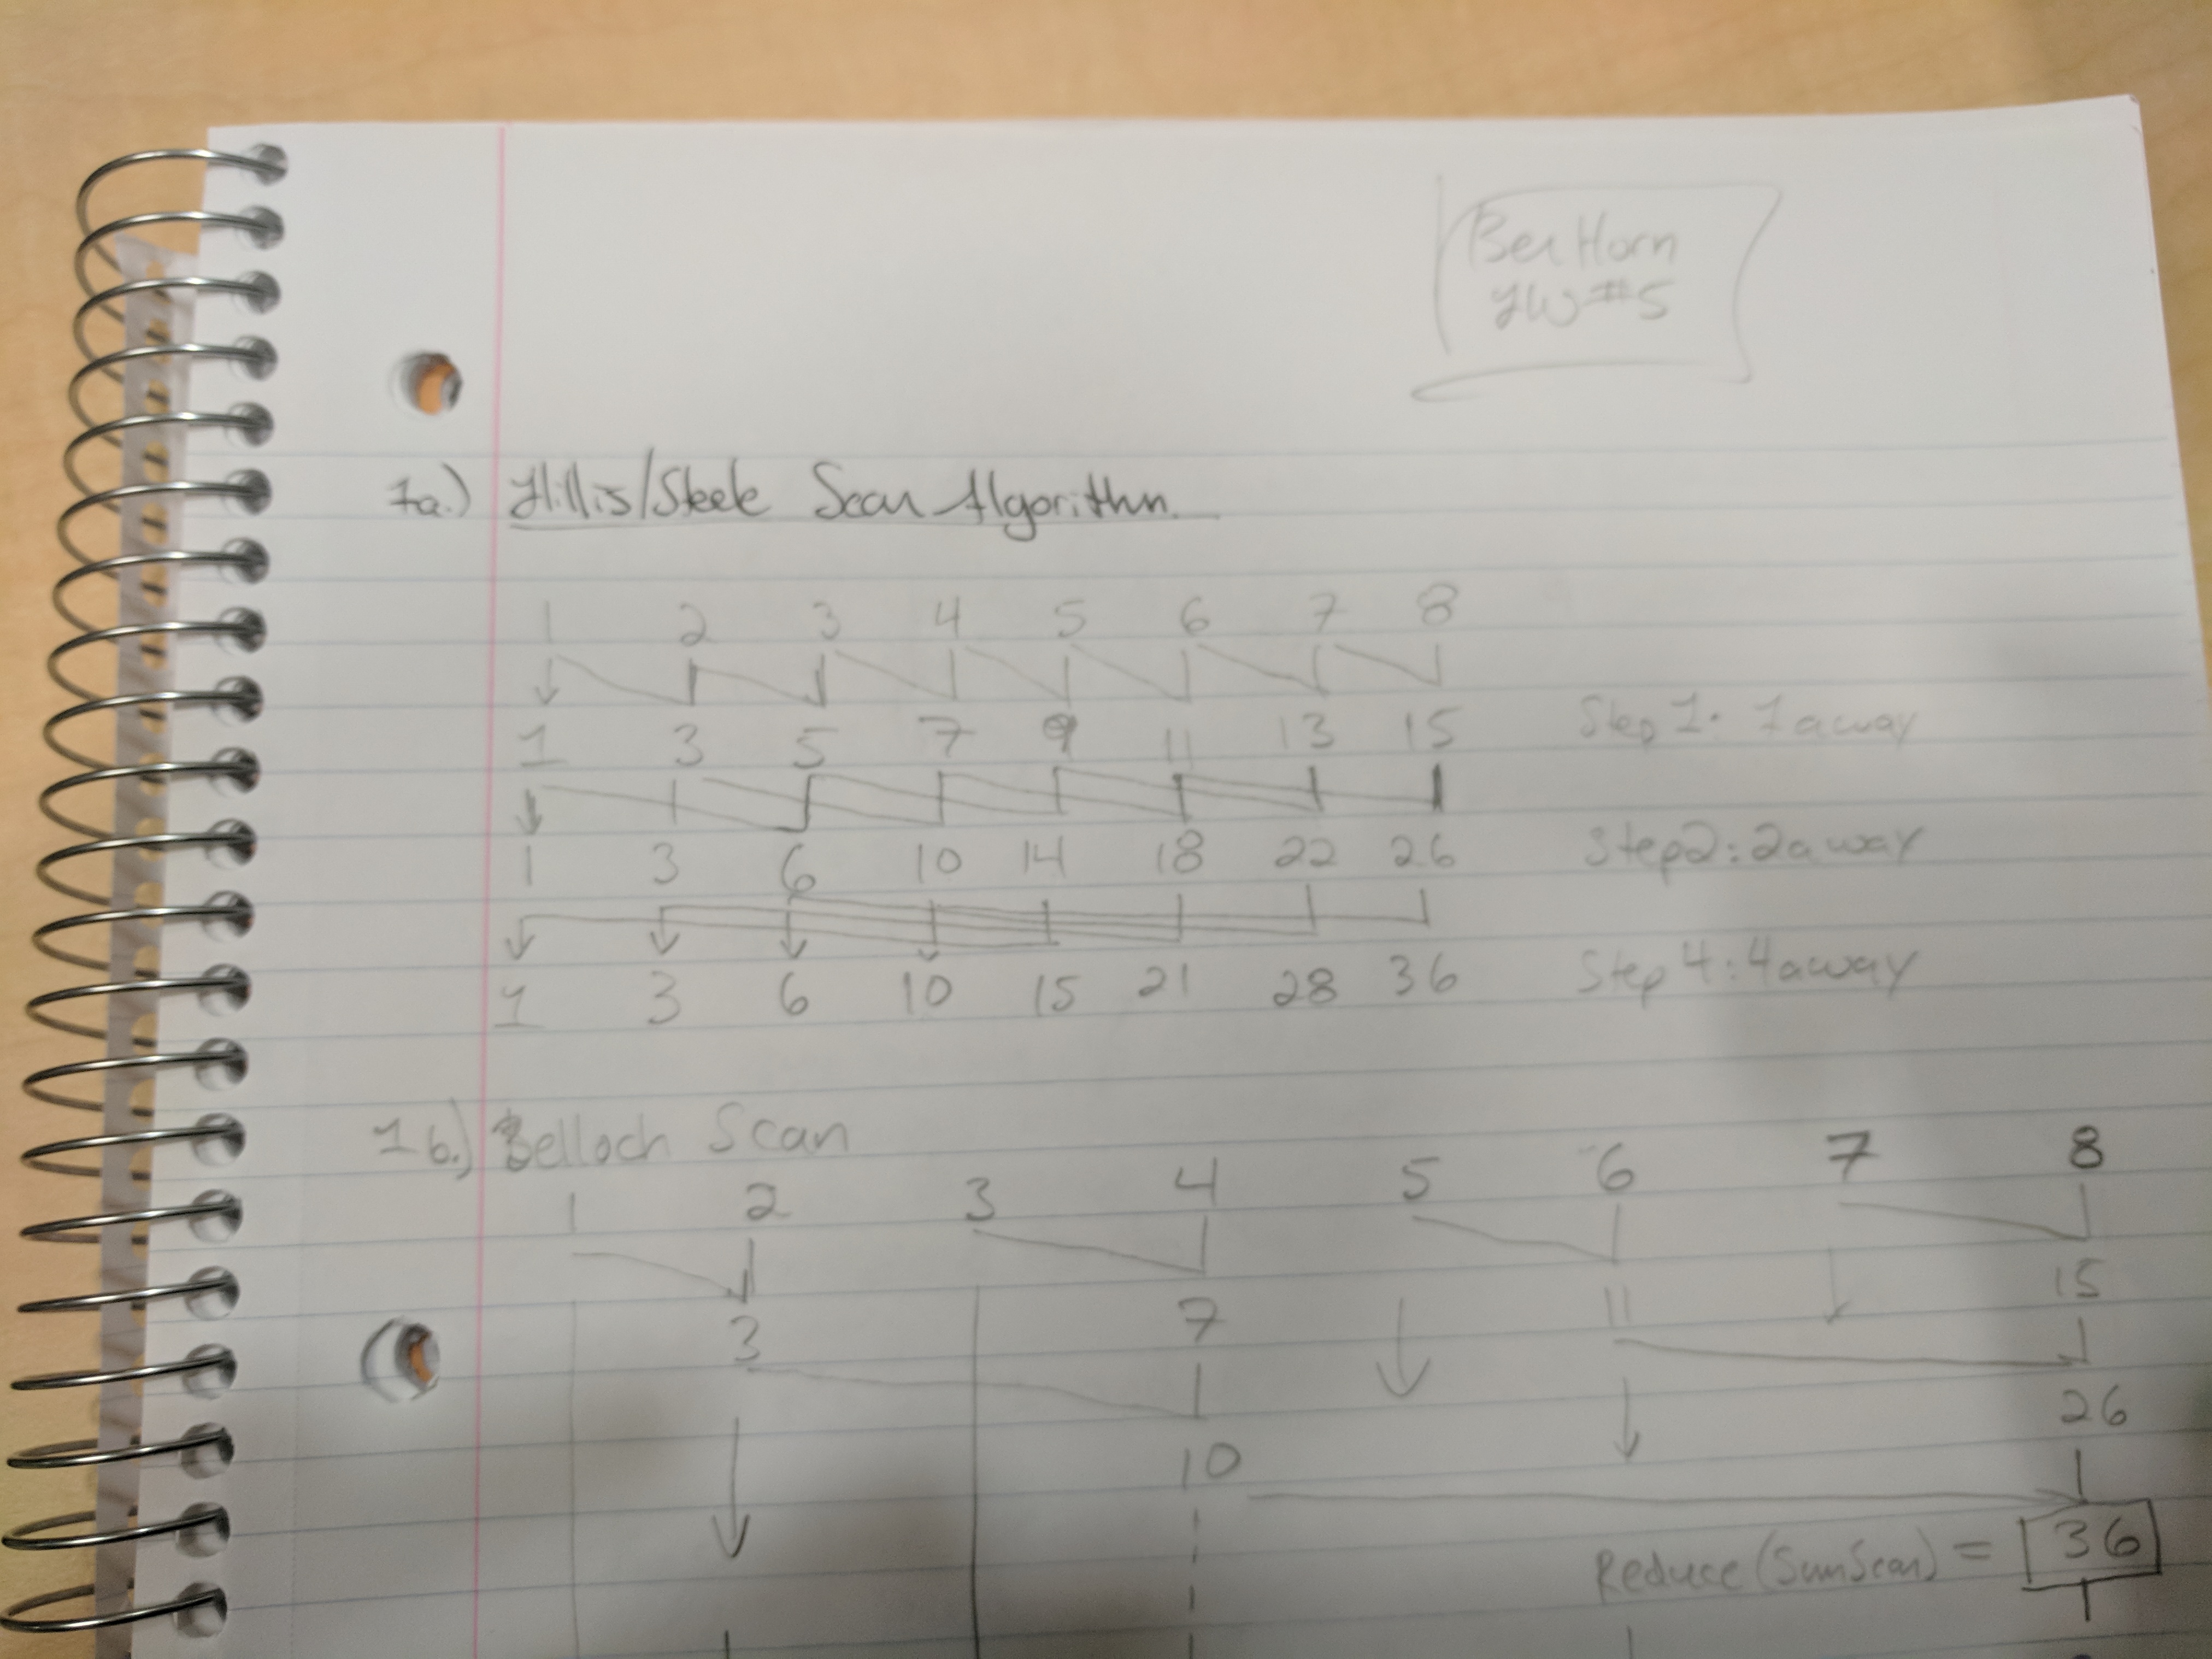 Ben Horn
HW #5
1a.) Hillis/Steele Scan Algorithm.
1 2 3 4 5 6 7 8
1 3 5 7 9 11 13 15 Step 1: 1 away
1 3 6 10 14 18 22 26 Step 2: 2 away
1 3 6 10 15 21 28 36 Step 4: 4 away
1b.) Belloch Scan
1 2 3 4 5 6 7 8
3 7 11 15
10 26
Reduce (Sum Scan) = 36